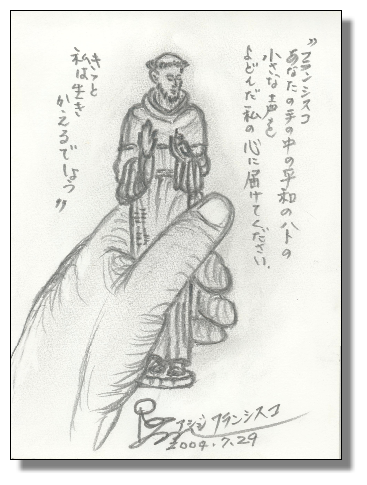 "フランシスコ
あなたの手の中の平和のハトの
小さな声を
よどんだ私の心に届けてください。
きっと
私は生き
かえるでしょう"
アシジ フランシスコ
2004.7.29